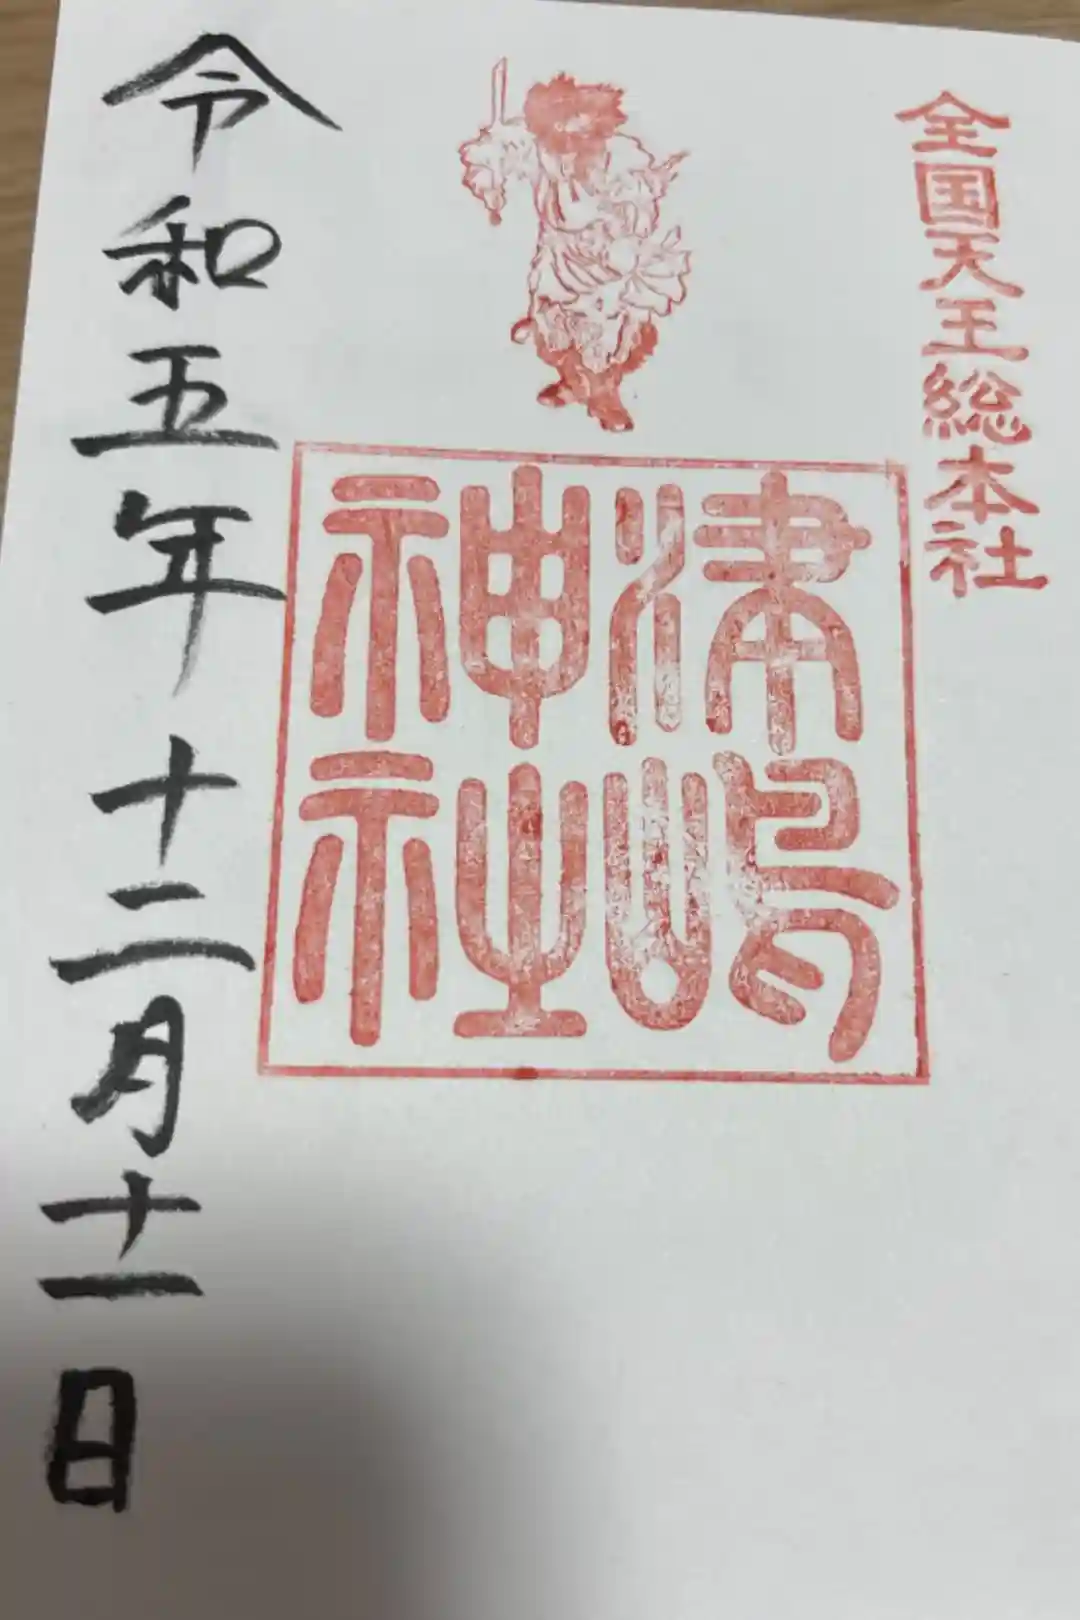 全国天王総本社
津嶋神社
令和五年十二月十一日